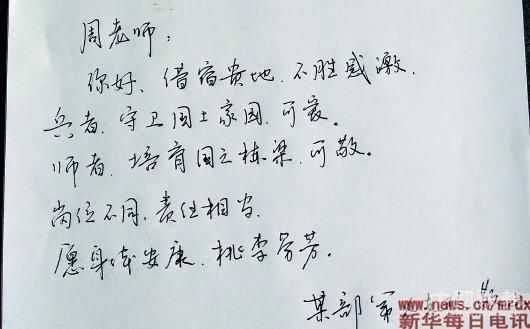 周老师：
你好、借宿贵地、不胜感激、
兵者、守卫国土家园、可爱。
师者、培育国之栋梁、可敬。
岗位不同、责任相当、
愿身体安康、桃李芬芳。
某部军
www.news.cn/mrdx
新华每日电讯